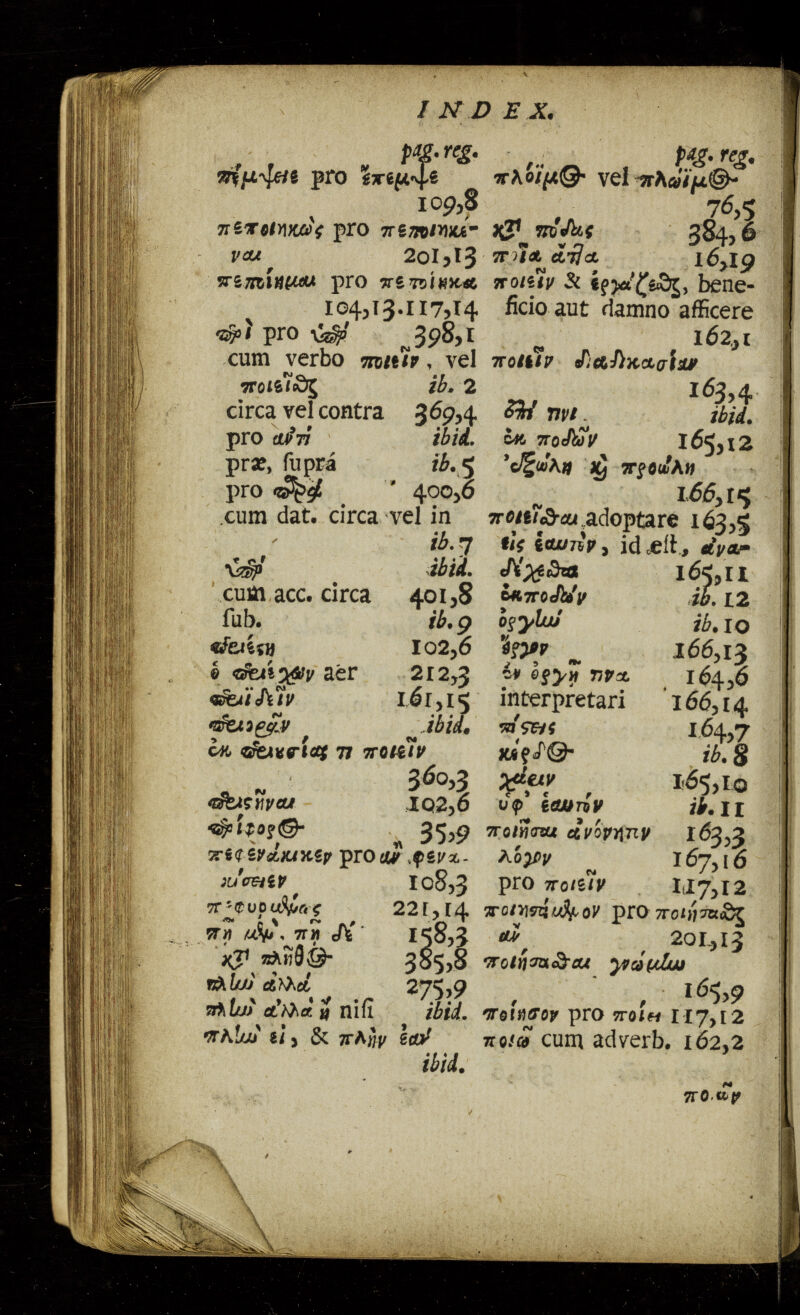 INDEX.
pag. reg.
πέμψειε pro ἔπεμψε
109,8
πεποιηκὼς pro πεποιηκέ-
ναι 201,13
πεποίημαι pro πεποίηκα
104,13.117,14
περὶ pro ὑπὲρ 398,1
cum verbo ποιεῖν, vel
ποιεῖσθαι ib. 2
circa vel contra 369,4
pro ἀντὶ ibid.
præ, ſuprá ib. 5
pro 400,6
cum dat. circa vel in
ib. 7
ὑπὲρ ibid.
cum acc. circa 401,8
ſub. ib. 9
102,6
ὁ περιέχων aër 212,3
περιϊδεῖν 161,15
περιορᾶν ibid.
ἐκ περιουσίας τι ποιεῖν
360,3
περιστῆναι 102,6
35,9
pro ἂν
108,3
221,14
πῆ μὲν, πῆ δὲ 158,3
κατὰ πλῆθος 385,8
πλὴν ἀλλὰ 275,9
πλὴν ἀλλὰ ἢ niſi ibid.
πλὴν εἰ, & πλὴν ἐὰν
ibid.
pag. reg.
πλόϊμος vel πλώϊμος
76,5
κατὰ πόδας 384,6
16,19
ποιεῖν & ἐργάζεσθαι, bene-
ficio aut damno afficere
162,1
ποιεῖν
163,4
ἐπί τινι. ibid.
ἐκ ποδῶν 165,12
ἐξώλη καὶ προώλη
166,15
ποιεῖσθαι adoptare 163,5
εἰς ἑαυτὸν, id eſt, ἀνα-
δέχεσθαι 165,11
ἐκποδὼν ib. 12
ὀργὴν ib. 10
ἔργον 166,13
ἐν ὀργῇ τινα 164,6
interpretari 166,14
πίστεις 164,7
κέρδος ib. 8
χάριν 165,10
ὑφ' ἑαυτὸν ib. 11
ποιῆσαι ἀνόνητον 163,3
λόγον 167,16
pro ποιεῖν 117,12
ποιησάμενον pro ποιήσασθαι
ἂν 201,13
ποιήσασθαι γνώμην
165,9
ποίησον pro ποίει 117,12
ποιῶ cum adverb. 162,2